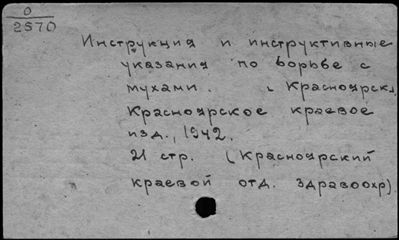 0
2570
Инструкция и инструктивные
указания по борьбе с
мухами. Красноярск.
Красноярское краевое
изд., 1942.
21 стр. (Красноярский
краевой отд. здравоохр)